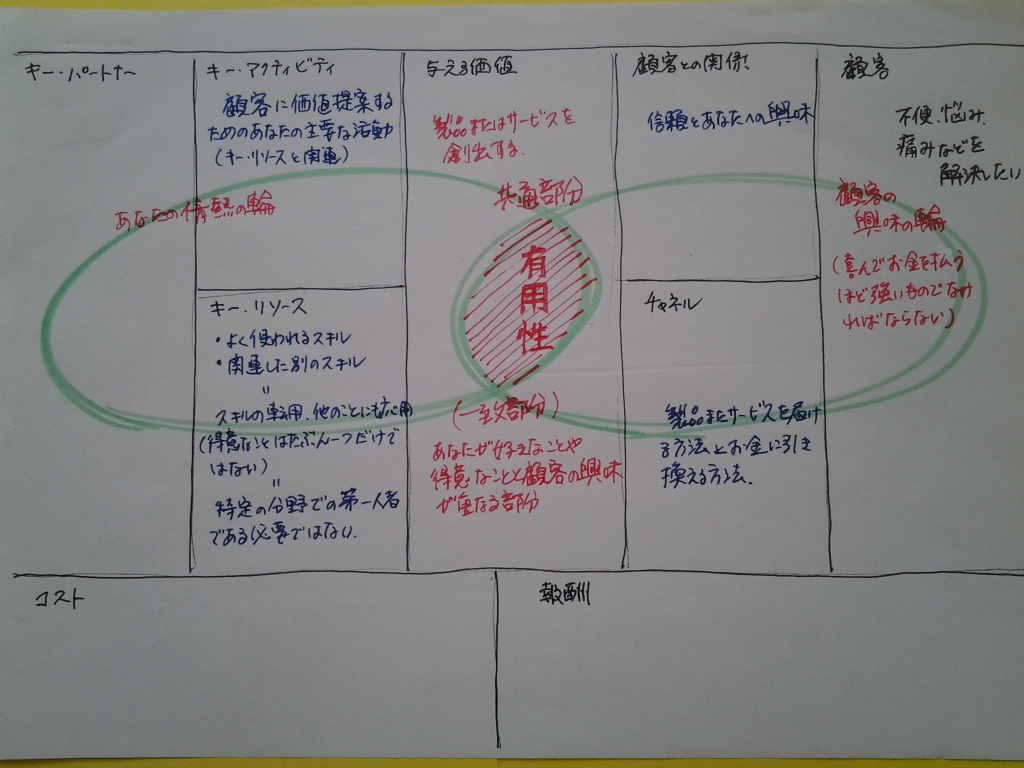 キー・パートナー
キー・アクティビティ
顧客に価値提案する
ためのあなたの主要な活動
(キー・リソースと関連)
与える価値
製品またはサービスを
創出する.
共通部分
有用性
(一致部分)
あなたが好きなことや
得意なことと顧客の興味
が重なる部分
顧客との関係
信頼とあなたへの興味
顧客
不便.悩み.
痛みなどを
解決したい
顧客の
興味の輪
(喜んでお金を払う
ほど強いものでなけ
ればならない)
あなたの情熱の輪
キー・リソース
・よく使われるスキル
・関連した別のスキル
〃
スキルの転用.他のことにも応用
(得意なことはたぶん一つだけで
はない)
〃
特定の分野での第一人者
である必要ではない.
チャネル
製品またサービスを届け
る方法とお金に引き
換える方法.
コスト
報酬